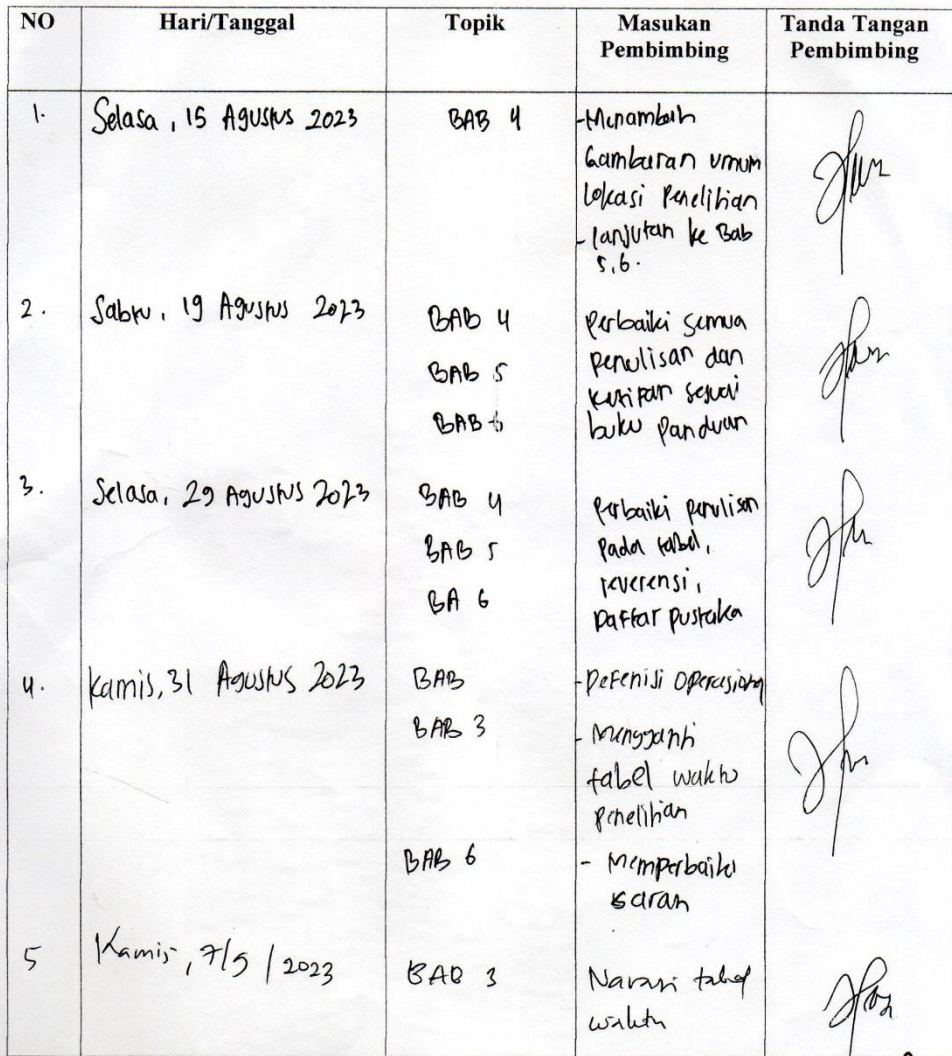 NO Hari/Tanggal Topik Masukan Pembimbing Tanda Tangan Pembimbing
1. Selasa, 15 Agustus 2023 BAB 4 -Menambah
Gambaran umum
Lokasi Penelitian
- lanjutan ke Bab
5,6.
2. Sabtu, 19 Agustus 2023 BAB 4 Perbaiki semua
BAB 5 Penulisan dan
kutipan sesuai
BAB 6 buku Panduan
3. Selasa, 29 Agustus 2023 BAB 4 Perbaiki penulisan
BAB 5 Pada tabel,
reverensi,
BA 6 Daftar pustaka
4. Kamis, 31 Agustus 2023 BAB - Defenisi Operasional
BAB 3 - Mengganti
tabel waktu
penelitian
BAB 6 - Memperbaiki
saran
5 Kamis, 7/9/2023 BAB 3 Narasi tabel
waktu